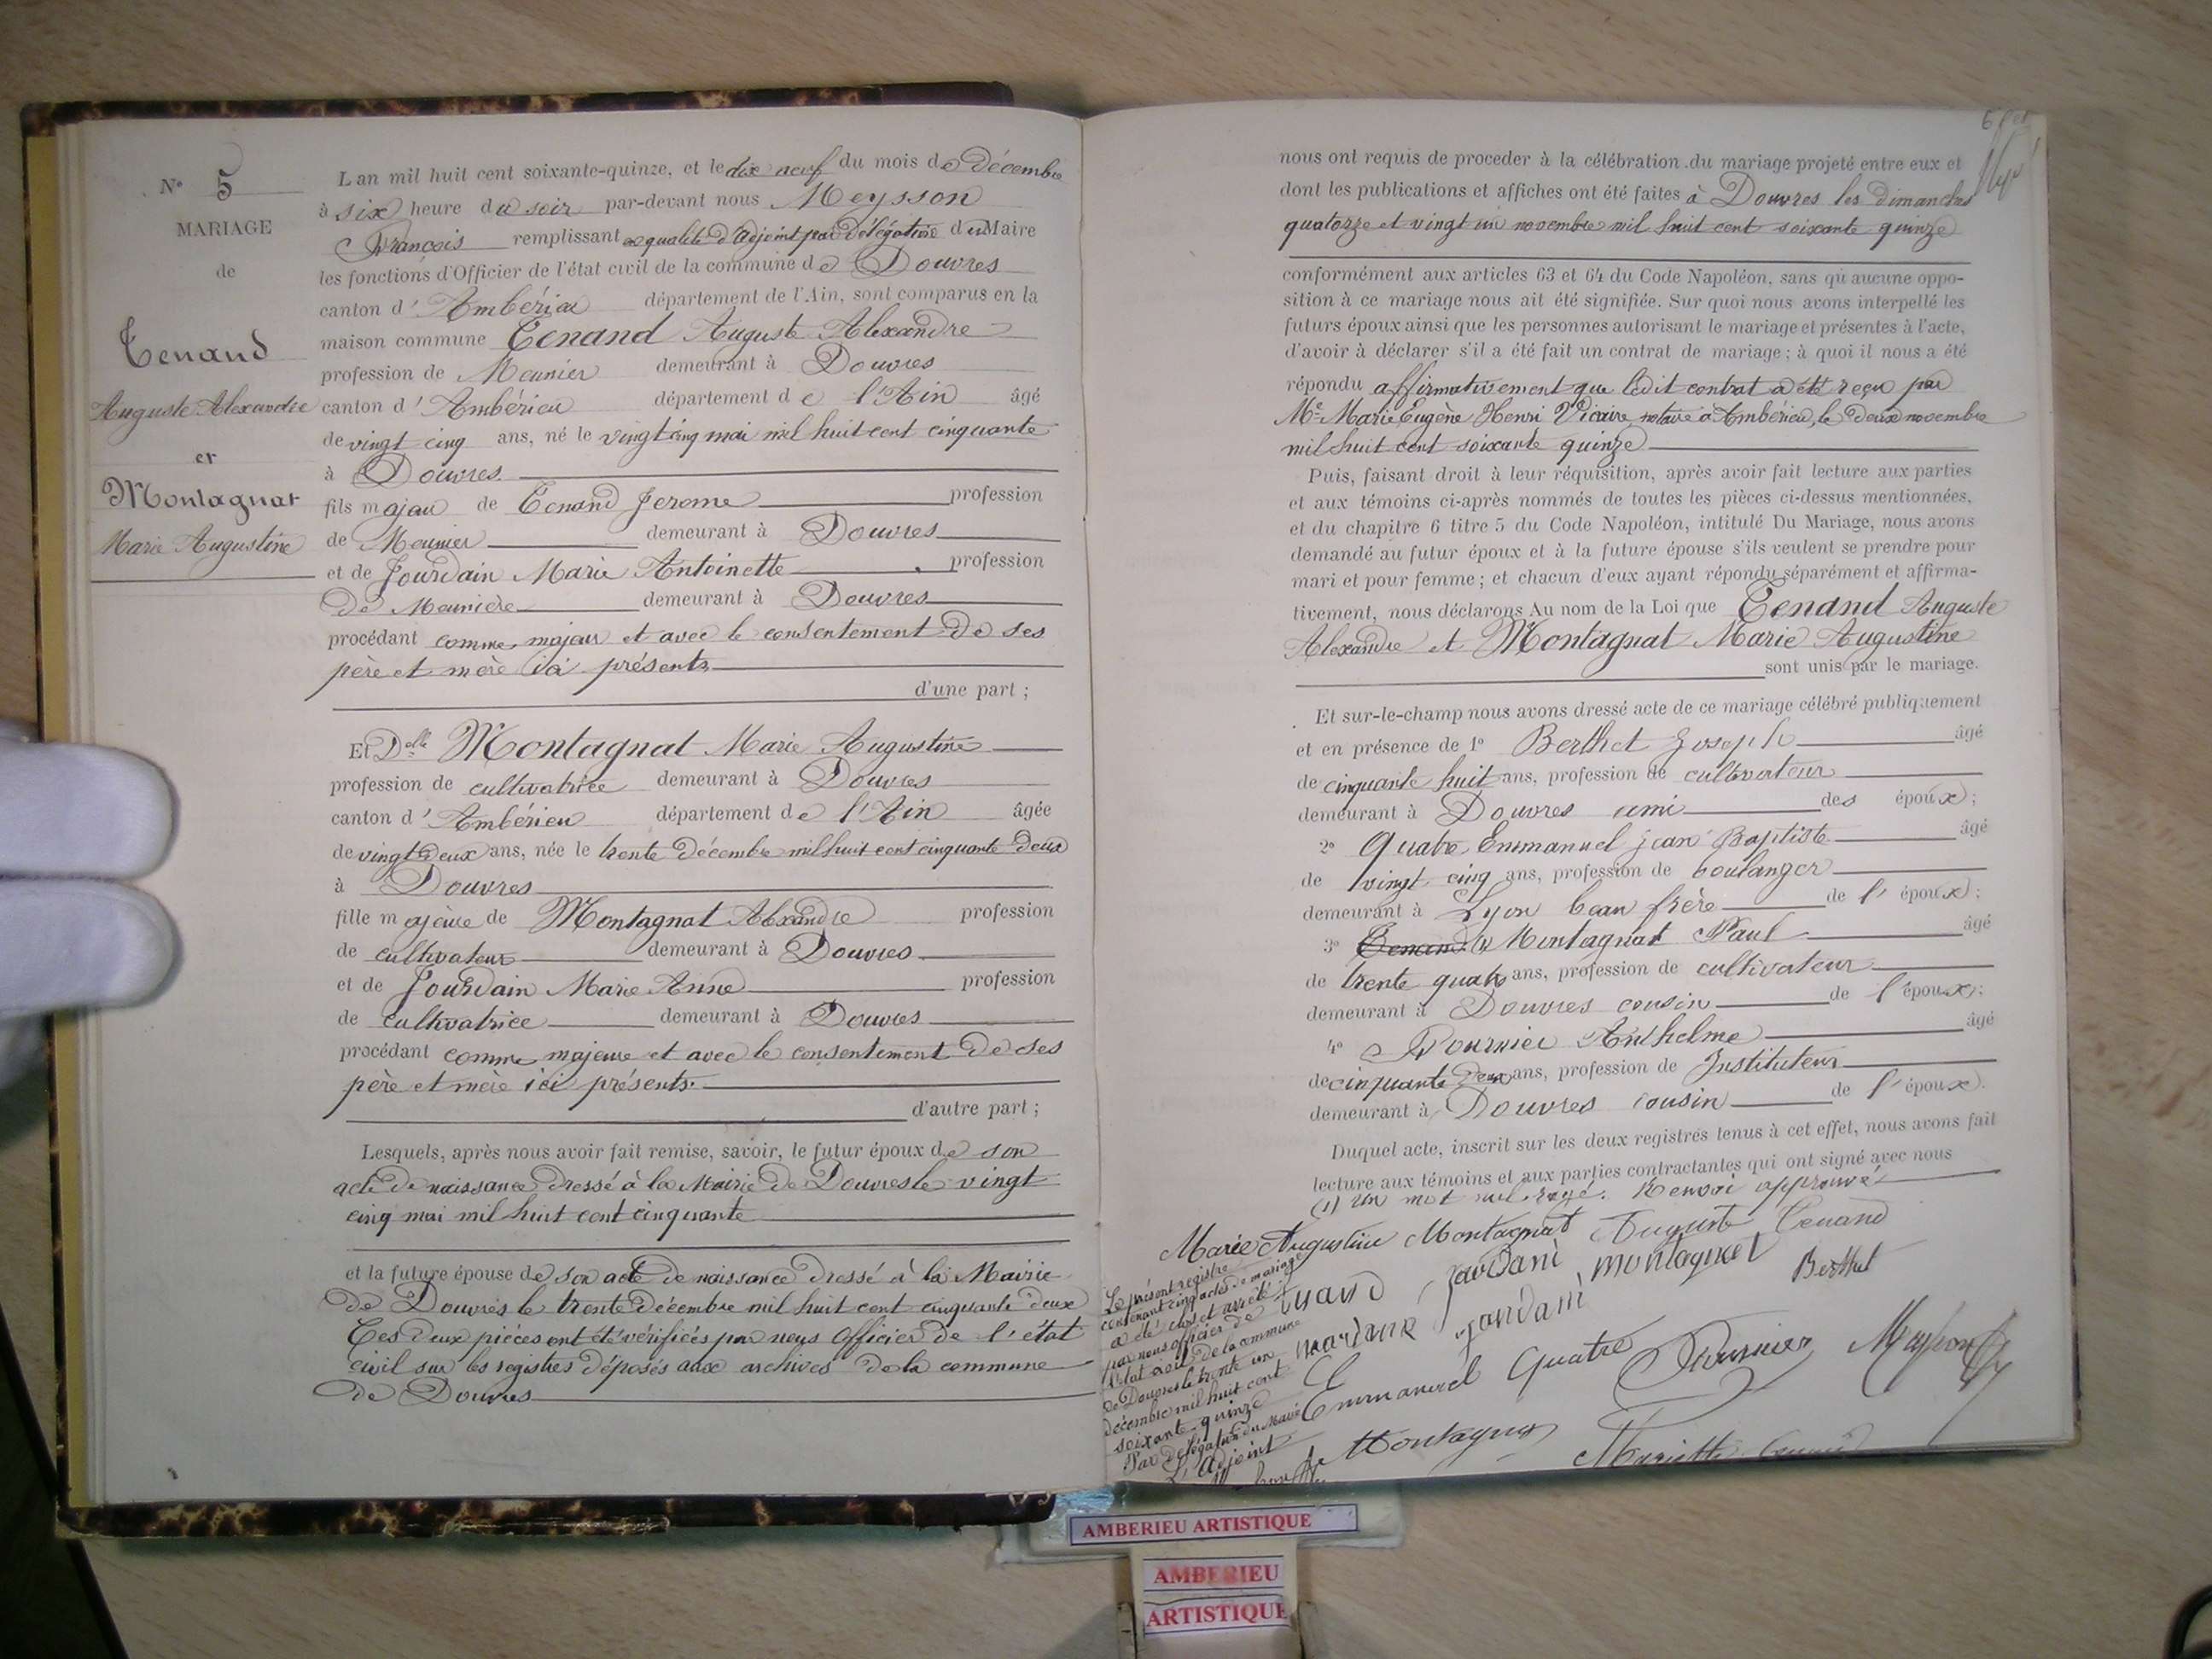 N° 5
MARIAGE
de
Tenand
Auguste Alexandre
et
Montagnat
Marie Augustine
L'an mil huit cent soixante-quinze, et le dix neuf du mois de Décembre
à six heure du soir par-devant nous Meysson
François remplissant en qualité d'adjoint par délégation du Maire
les fonctions d'Officier de l'état civil de la commune de Douvres
canton d'Ambérieu département de l'Ain, sont comparus en la
maison commune Tenand Auguste Alexandre
profession de Meunier demeurant à Douvres
canton d'Ambérieu département de l'Ain âgé
de vingt cinq ans, né le vingt cinq mai mil huit cent cinquante
à Douvres
fils majeur de Tenand Jerome profession
de Meunier demeurant à Douvres
et de Jourdain Marie Antoinette profession
de Meunière demeurant à Douvres
procédant comme majeur et avec le consentement de ses
père et mère ici présents
d'une part ;
Et Delle Montagnat Marie Augustine
profession de cultivatrice demeurant à Douvres
canton d'Ambérieu département de l'Ain âgée
de vingt deux ans, née le trente décembre mil huit cent cinquante deux
à Douvres
fille majeure de Montagnat Alexandre profession
de cultivateur demeurant à Douvres
et de Jourdain Marie Anne profession
de cultivatrice demeurant à Douvres
procédant comme majeure et avec le consentement de ses
père et mère ici présents.
d'autre part ;
Lesquels, après nous avoir fait remise, savoir, le futur époux de son
acte de naissance dressé à la Mairie de Douvres le vingt
cinq mai mil huit cent cinquante
et la future épouse de son acte de naissance dressé à la Mairie
de Douvres le trente décembre mil huit cent cinquante deux
Ces deux pièces ont été vérifiées par nous Officier de l'état
civil sur les registres déposés aux archives de la commune
de Douvres
nous ont requis de proceder à la célébration du mariage projeté entre eux et
dont les publications et affiches ont été faites à Douvres les dimanches
quatorze et vingt un novembre mil huit cent soixante quinze
conformément aux articles 63 et 64 du Code Napoléon, sans qu'aucune oppo-
sition à ce mariage nous ait été signifiée. Sur quoi nous avons interpellé les
futurs époux ainsi que les personnes autorisant le mariage et présentes à l'acte,
d'avoir à déclarer s'il a été fait un contrat de mariage ; à quoi il nous a été
répondu affirmativement que ledit contrat a été reçu par
Me Marie Eugène Henri Vicaire notaire à Ambérieu, le deux novembre
mil huit cent soixante quinze
Puis, faisant droit à leur réquisition, après avoir fait lecture aux parties
et aux témoins ci-après nommés de toutes les pièces ci-dessus mentionnées,
et du chapitre 6 titre 5 du Code Napoléon, intitulé Du Mariage, nous avons
demandé au futur époux et à la future épouse s'ils veulent se prendre pour
mari et pour femme ; et chacun d'eux ayant répondu séparément et affirma-
tivement, nous déclarons Au nom de la Loi que Tenand Auguste
Alexandre et Montagnat Marie Augustine
sont unis par le mariage.
Et sur-le-champ nous avons dressé acte de ce mariage célébré publiquement
et en présence de 1° Berthet Joseph âgé
de cinquante huit ans, profession de cultivateur
demeurant à Douvres ami des époux ;
2° Quatre Emmanuel Jean Baptiste âgé
de vingt cinq ans, profession de boulanger
demeurant à Lyon beau frère de l'époux ;
3° Tenand (1) Montagnat Paul âgé
de trente quatre ans, profession de cultivateur
demeurant à Douvres cousin de l'époux ;
4° Fournier Anthelme âgé
de cinquante deux ans, profession de Instituteur
demeurant à Douvres cousin de l'époux.
Duquel acte, inscrit sur les deux registres tenus à cet effet, nous avons fait
lecture aux témoins et aux parties contractantes qui ont signé avec nous
(1) Un mot nul rayé. Renvoi approuvé
Marie Augustine Montagnat Auguste Tenand
jourdani montagnat Berthet
marianne jourdani
Emmanuel Quatre Fournier
Montagnat Mariette
Le présent registre
contenant cinq actes de mariage
a été clos et arrêté
par nous officier de
l'état civil de la commune
de Douvres le trente un
décembre mil huit cent
soixante quinze
Par délégation du Maire
L'adjoint
AMBERIEU ARTISTIQUE
AMBERIEU
ARTISTIQUE